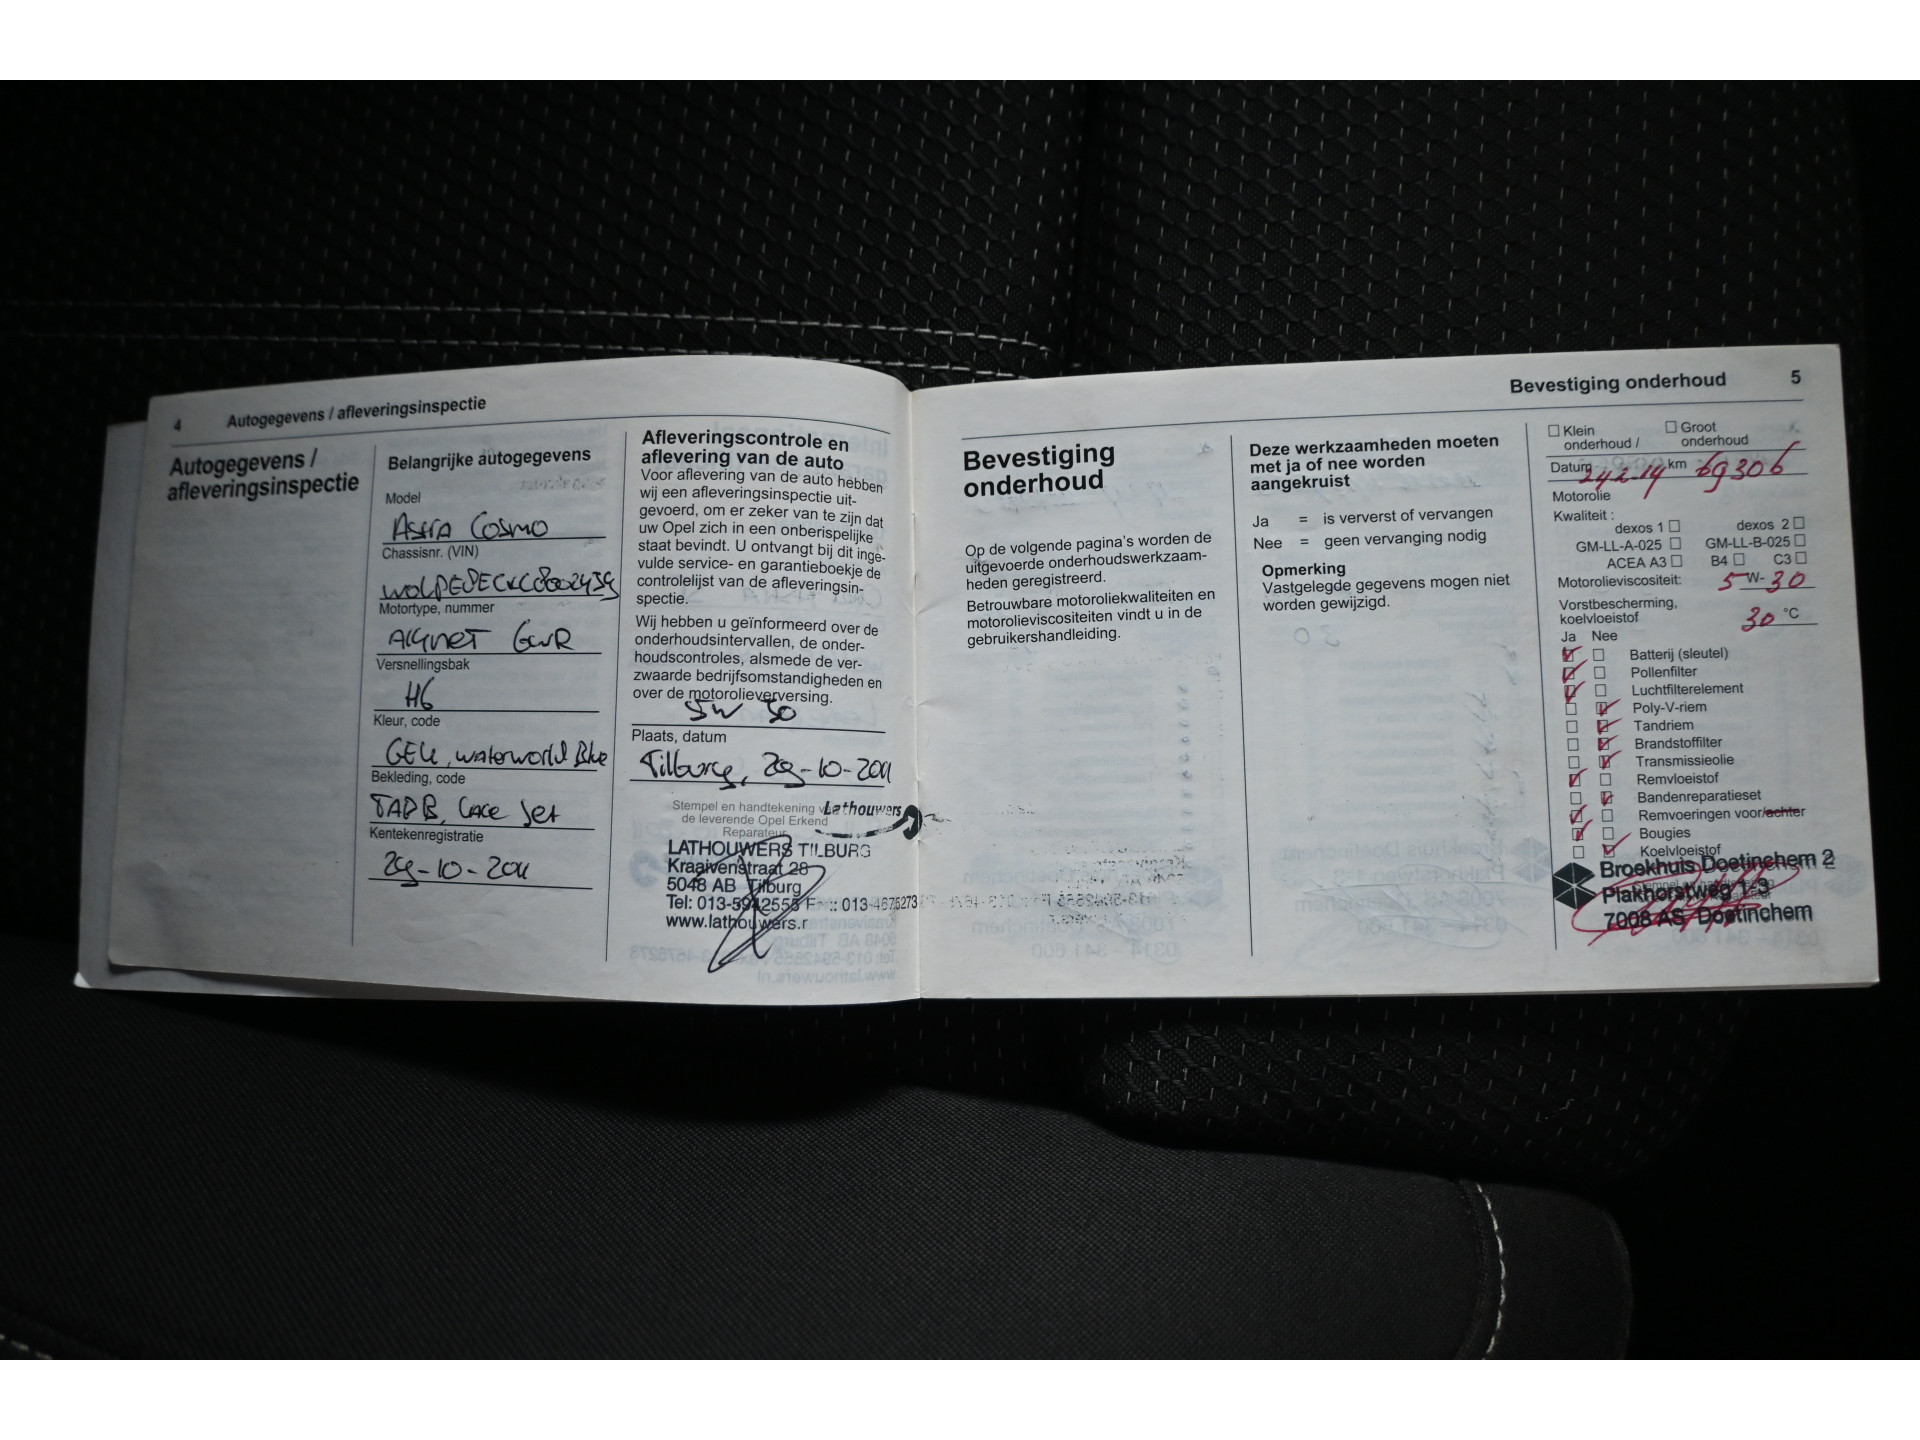 4 Autogegevens / afleveringsinspectie
Autogegevens /
afleveringsinspectie
Belangrijke autogegevens
Model
Astra Cosmo
Chassisnr. (VIN)
Motortype, nummer
Versnellingsbak
H6
Kleur, code
GEU, waterworld Blue
Bekleding, code
TAPB, Lace Jet
Kentekenregistratie
29-10-2011
Afleveringscontrole en
aflevering van de auto
Voor aflevering van de auto hebben
wij een afleveringsinspectie uit-
gevoerd, om er zeker van te zijn dat
uw Opel zich in een onberispelijke
staat bevindt. U ontvangt bij dit inge-
vulde service- en garantieboekje de
controlelijst van de afleveringsin-
spectie.
Wij hebben u geïnformeerd over de
onderhoudsintervallen, de onder-
houdscontroles, alsmede de ver-
zwaarde bedrijfsomstandigheden en
over de motorolieverversing.
5W 30
Plaats, datum
Tilburg, 29-10-2011
Stempel en handtekening van
de leverende Opel Erkend
Reparateur
Lathouwers
LATHOUWERS TILBURG
Kraaivenstraat 28
5048 AB Tilburg
Tel: 013-5942555 013-4675273
www.lathouwers.n
Bevestiging onderhoud 5
Bevestiging
onderhoud
Op de volgende pagina's worden de
uitgevoerde onderhoudswerkzaam-
heden geregistreerd.
Betrouwbare motoroliekwaliteiten en
motorolieviscositeiten vindt u in de
gebruikershandleiding.
Deze werkzaamheden moeten
met ja of nee worden
aangekruist
Ja = is ververst of vervangen
Nee = geen vervanging nodig
Opmerking
Vastgelegde gegevens mogen niet
worden gewijzigd.
Klein onderhoud / Groot onderhoud
Datum 24-2-14 km 69306
Motorolie
Kwaliteit :
dexos 1 dexos 2
GM-LL-A-025 GM-LL-B-025
ACEA A3 B4 C3
Motorolieviscositeit: 5 W- 30
Vorstbescherming,
koelvloeistof 30 °C
Ja Nee
Batterij (sleutel)
Pollenfilter
Luchtfilterelement
Poly-V-riem
Tandriem
Brandstoffilter
Transmissieolie
Remvloeistof
Bandenreparatieset
Remvoeringen voor/achter
Bougies
Koelvloeistof
Broekhuis Doetinchem 2
Plakhorstweg 1-3
7008 AS Doetinchem